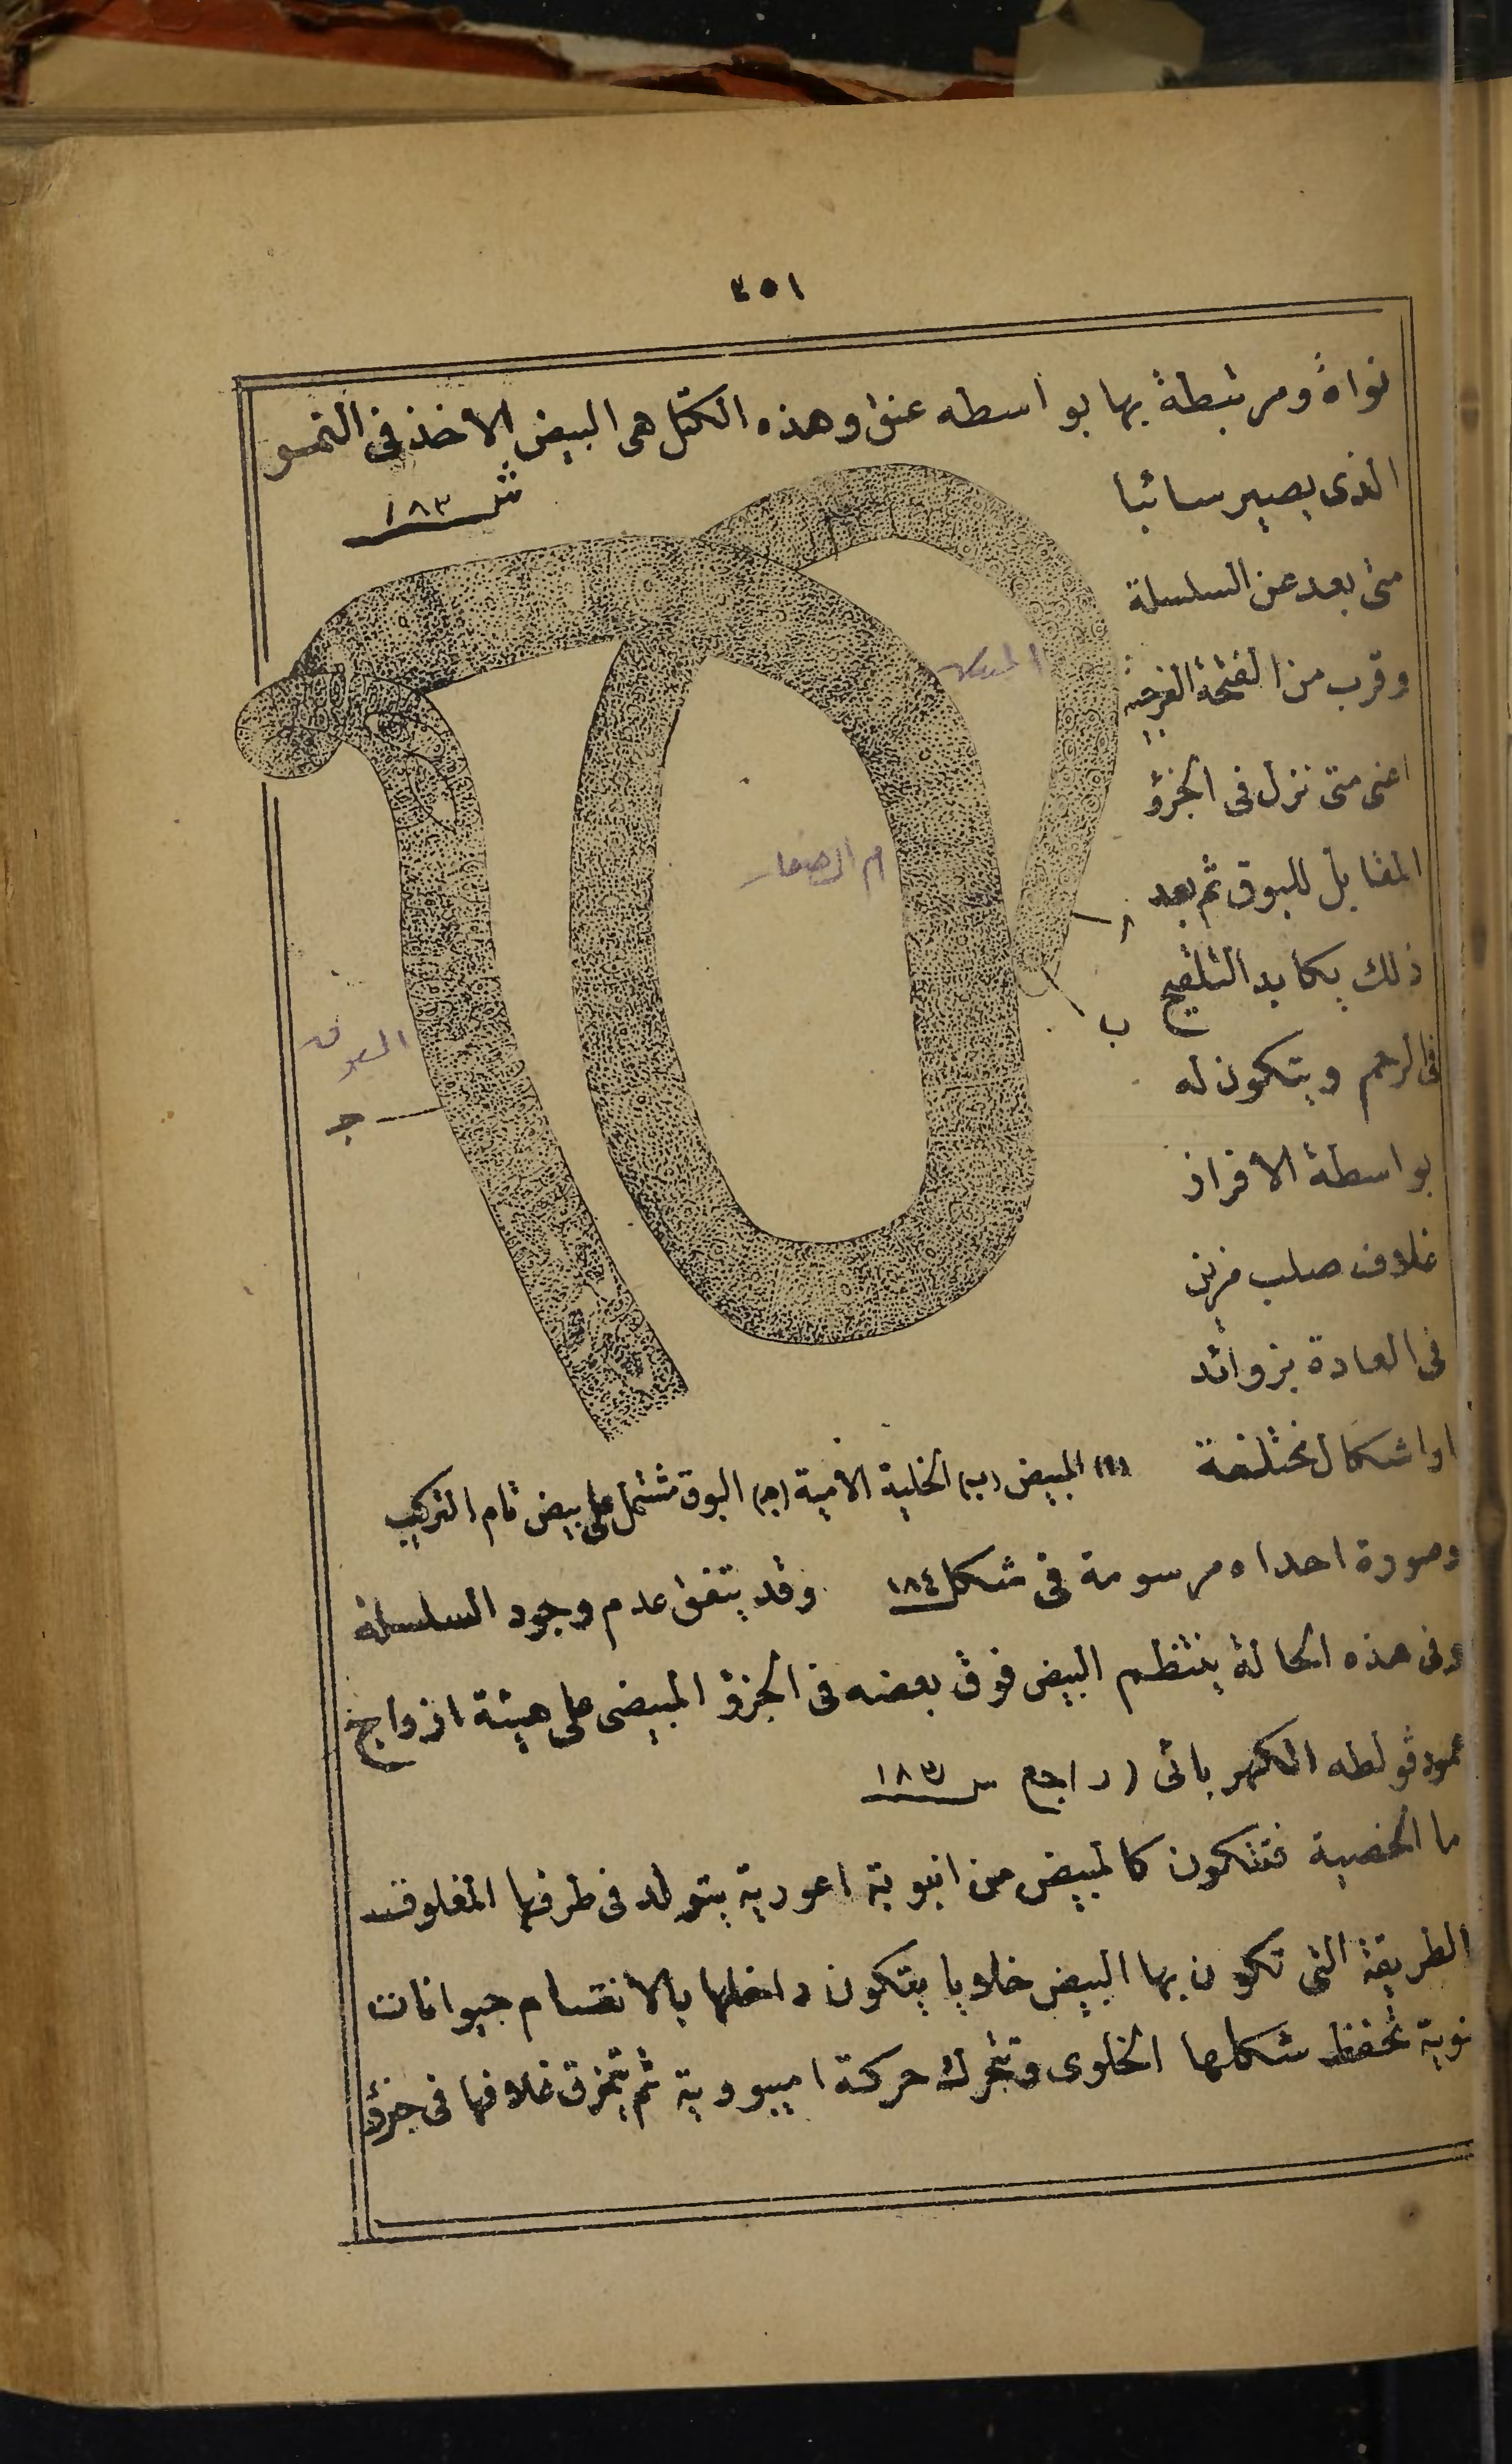 ٣٥١
نواة ومرتبطة بها بواسطه عنق وهذه الكتل هى البيض الاخذ فى النمو
الذى يصير سائبا
ش ١٨٣
متى بعد عن السلسلة
وقرب من الفتحة الفرجية
اعنى متى نزل فى الجزؤ
المقابل للبوق ثم بعد
ذلك يكابد التلقيح
فى الرحم ويتكون له
بواسطة الافراز
غلاف صلب مزين
فى العادة بزوائد
او اشكال مختلفة
ا
ب
ج
البوق
(ا) المبيض (ب) الخلية الامية (ج) البوق مشتمل على بيض تام التركيب
وصورة احداه مرسومة فى شكل ١٨٤ وقد يتفق عدم وجود السلسلة
وفى هذه الحالة ينتظم البيض فوق بعضه فى الجزؤ المبيضى على هيئة ازواج
عمود ڤولطه الكهربائى (راجع ش ١٨٣
ما الخصية فتتكون كالمبيض من انبوبة اعورية يتولد فى طرفها المغلوق
الطريقة التى تكون بها البيض خلايا يتكون داخلها بالانقسام حيوانات
نوية تحفظ شكلها الخلوى وتتحرك حركة اميبووية ثم يتمزق غلافها فى جزؤ